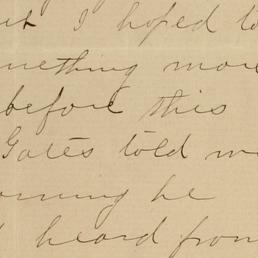 but I hoped to
something more
before this
Gates told me
morning he
heard from